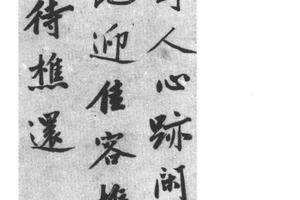 人心跡閑
迎佳客
待樵還